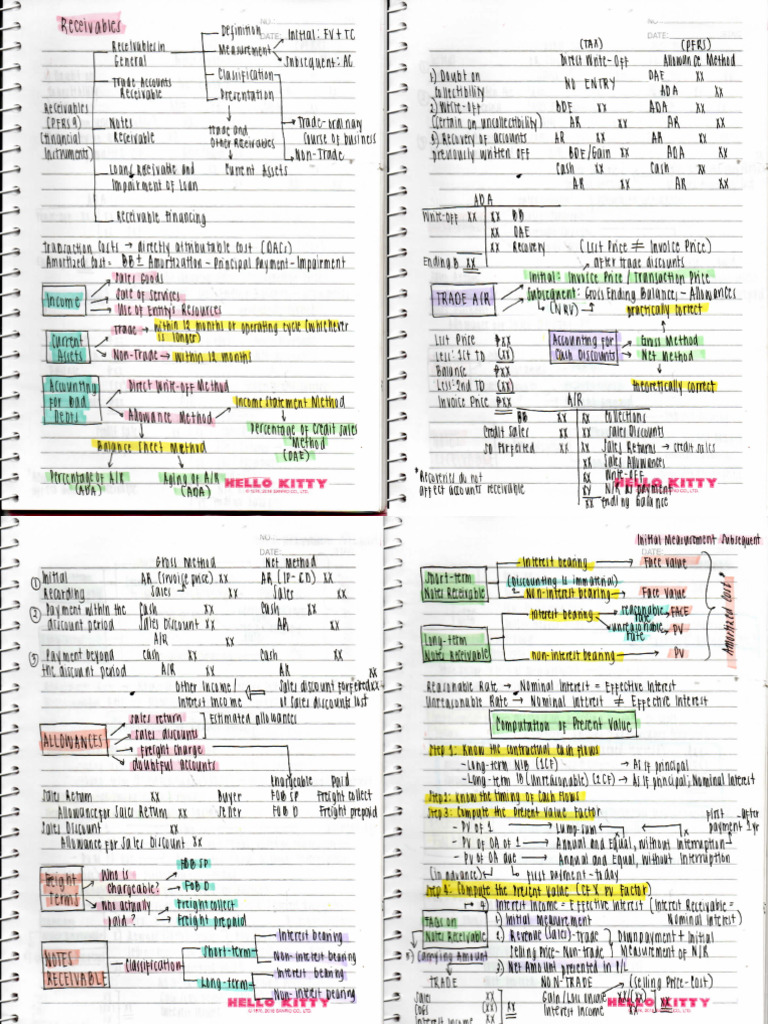 Receivables
NO
DATE:
Definition
Receivables in General
Measurement
Initial: FV + TC
Subsequent: AC
Classification
Trade Accounts Receivable
Presentation
Receivables (PFRS 9) (Financial Instruments)
Notes Receivable
Trade and Other Receivables
Trade-ordinary course of business
Non-Trade
Loans Receivable and Impairment of Loan
Current Assets
Receivable Financing
Transaction Costs → directly attributable cost (DACs)
Amortized Cost = BB ± Amortization - Principal Payment - Impairment
Income
Sale Goods
Sale of Services
Use of Entity's Resources
Current Assets
Trade → within 12 months or operating cycle (whichever is longer)
Non-Trade → within 12 months
Accounting for Bad Debts
Direct Write-off Method
Allowance Method
Income Statement Method
Percentage of Credit Sales Method (DAE)
Balance Sheet Method
Percentage of A/R (ADA)
Aging of A/R (ADA)
HELLO KITTY
NO
DATE:
(TAX) (PFRS)
Direct Write-Off Allowance Method
1) Doubt on Collectibility
NO ENTRY
DAE xx
ADA xx
2) Write-off (Certain on uncollectibility)
BDE xx ADA xx
AR xx AR xx
3) Recovery of accounts previously written off
AR xx AR xx
BDE/Gain xx ADA xx
Cash xx Cash xx
AR xx AR xx
ADA
Write-off xx xx BB
xx DAE
xx Recovery
Ending B xx
(List Price ≠ Invoice Price)
after trade discounts
TRADE A/R
Initial: Invoice Price / Transaction Price
Subsequent: Gross Ending Balance - Allowances
(NRV)
practically correct
List Price Pxx
Less: 1st TD (xx)
Balance Pxx
Less: 2nd TD (xx)
Invoice Price Pxx
Accounting for Cash Discounts
Gross Method
Net Method
theoretically correct
A/R
BB xx xx Collections
Credit Sales xx xx Sales Discounts
SD Forfeited xx xx Sales Returns → credit sales
xx Sales Allowances
xx Write-off
xx N/R as payment
xx Ending balance
*Recoveries do not affect accounts receivable
HELLO KITTY
NO
DATE:
Gross Method Net Method
1 Initial Recording
AR (Invoice price) xx AR (IP - CD) xx
Sales xx Sales xx
2 Payment within the discount period
Cash xx Cash xx
Sales Discount xx AR xx
A/R xx
3 Payment beyond the discount period
Cash xx Cash xx
A/R xx AR xx
Other Income/ Interest Income
Sales discount forfeited xx
or sales discounts lost
ALLOWANCES
sales return
sales discounts
Estimated allowances
freight charge
doubtful accounts
Chargeable Paid
Sales Return xx
Buyer FOB SP Freight collect
Allowance for Sales Return xx
Seller FOB D Freight prepaid
Sales Discount xx
Allowance for Sales Discount xx
Freight Terms
Who is chargeable?
FOB SP
FOB D
Who actually paid?
Freight collect
Freight prepaid
NOTES RECEIVABLE
Classification
Short-term
Interest bearing
Non-interest bearing
Long-term
Interest bearing
Non-interest bearing
HELLO KITTY
NO
DATE:
Initial Measurement Subsequent
Short-term Notes Receivable
Interest bearing → Face value
(Discounting is immaterial)
Non-interest bearing → Face Value
Long-term Notes Receivable
Interest bearing
reasonable rate → FACE
unreasonable rate → PV
non-interest bearing → PV
Amortized Cost
Reasonable Rate → Nominal Interest = Effective Interest
Unreasonable Rate → Nominal Interest ≠ Effective Interest
Computation of Present Value
Step 1: Know the contractual cash flows
- Long-term NIB (1CF) → As if principal
- Long-term IB (Unreasonable) (2CF) → As if principal; Nominal Interest
Step 2: Know the timing of Cash flows
Step 3: Compute the Present Value Factor
First payment - after 1yr
- PV of 1 → Lump-sum
- PV of OA of 1 → Annual and Equal, without Interruption
- PV of OA due → Annual and Equal, without Interruption
(in advance)
First payment - today
Step 4: Compute the Present Value (CF X PV Factor)
4) Interest Income = Effective Interest (Interest Receivable = Nominal Interest)
FAQs on Notes Receivable
1) Initial Measurement
2) Revenue (Sales)-Trade
Selling Price- Non-trade
Downpayment + Initial Measurement of N/R
5) Carrying Amount
3) Net Amount presented in P/L
TRADE NON-TRADE (Selling Price - Cost)
Sales xx
Gain/Loss on sale xx/(xx)
COGS (xx)
Interest Income xx
Interest Income xx
HELLO KITTY